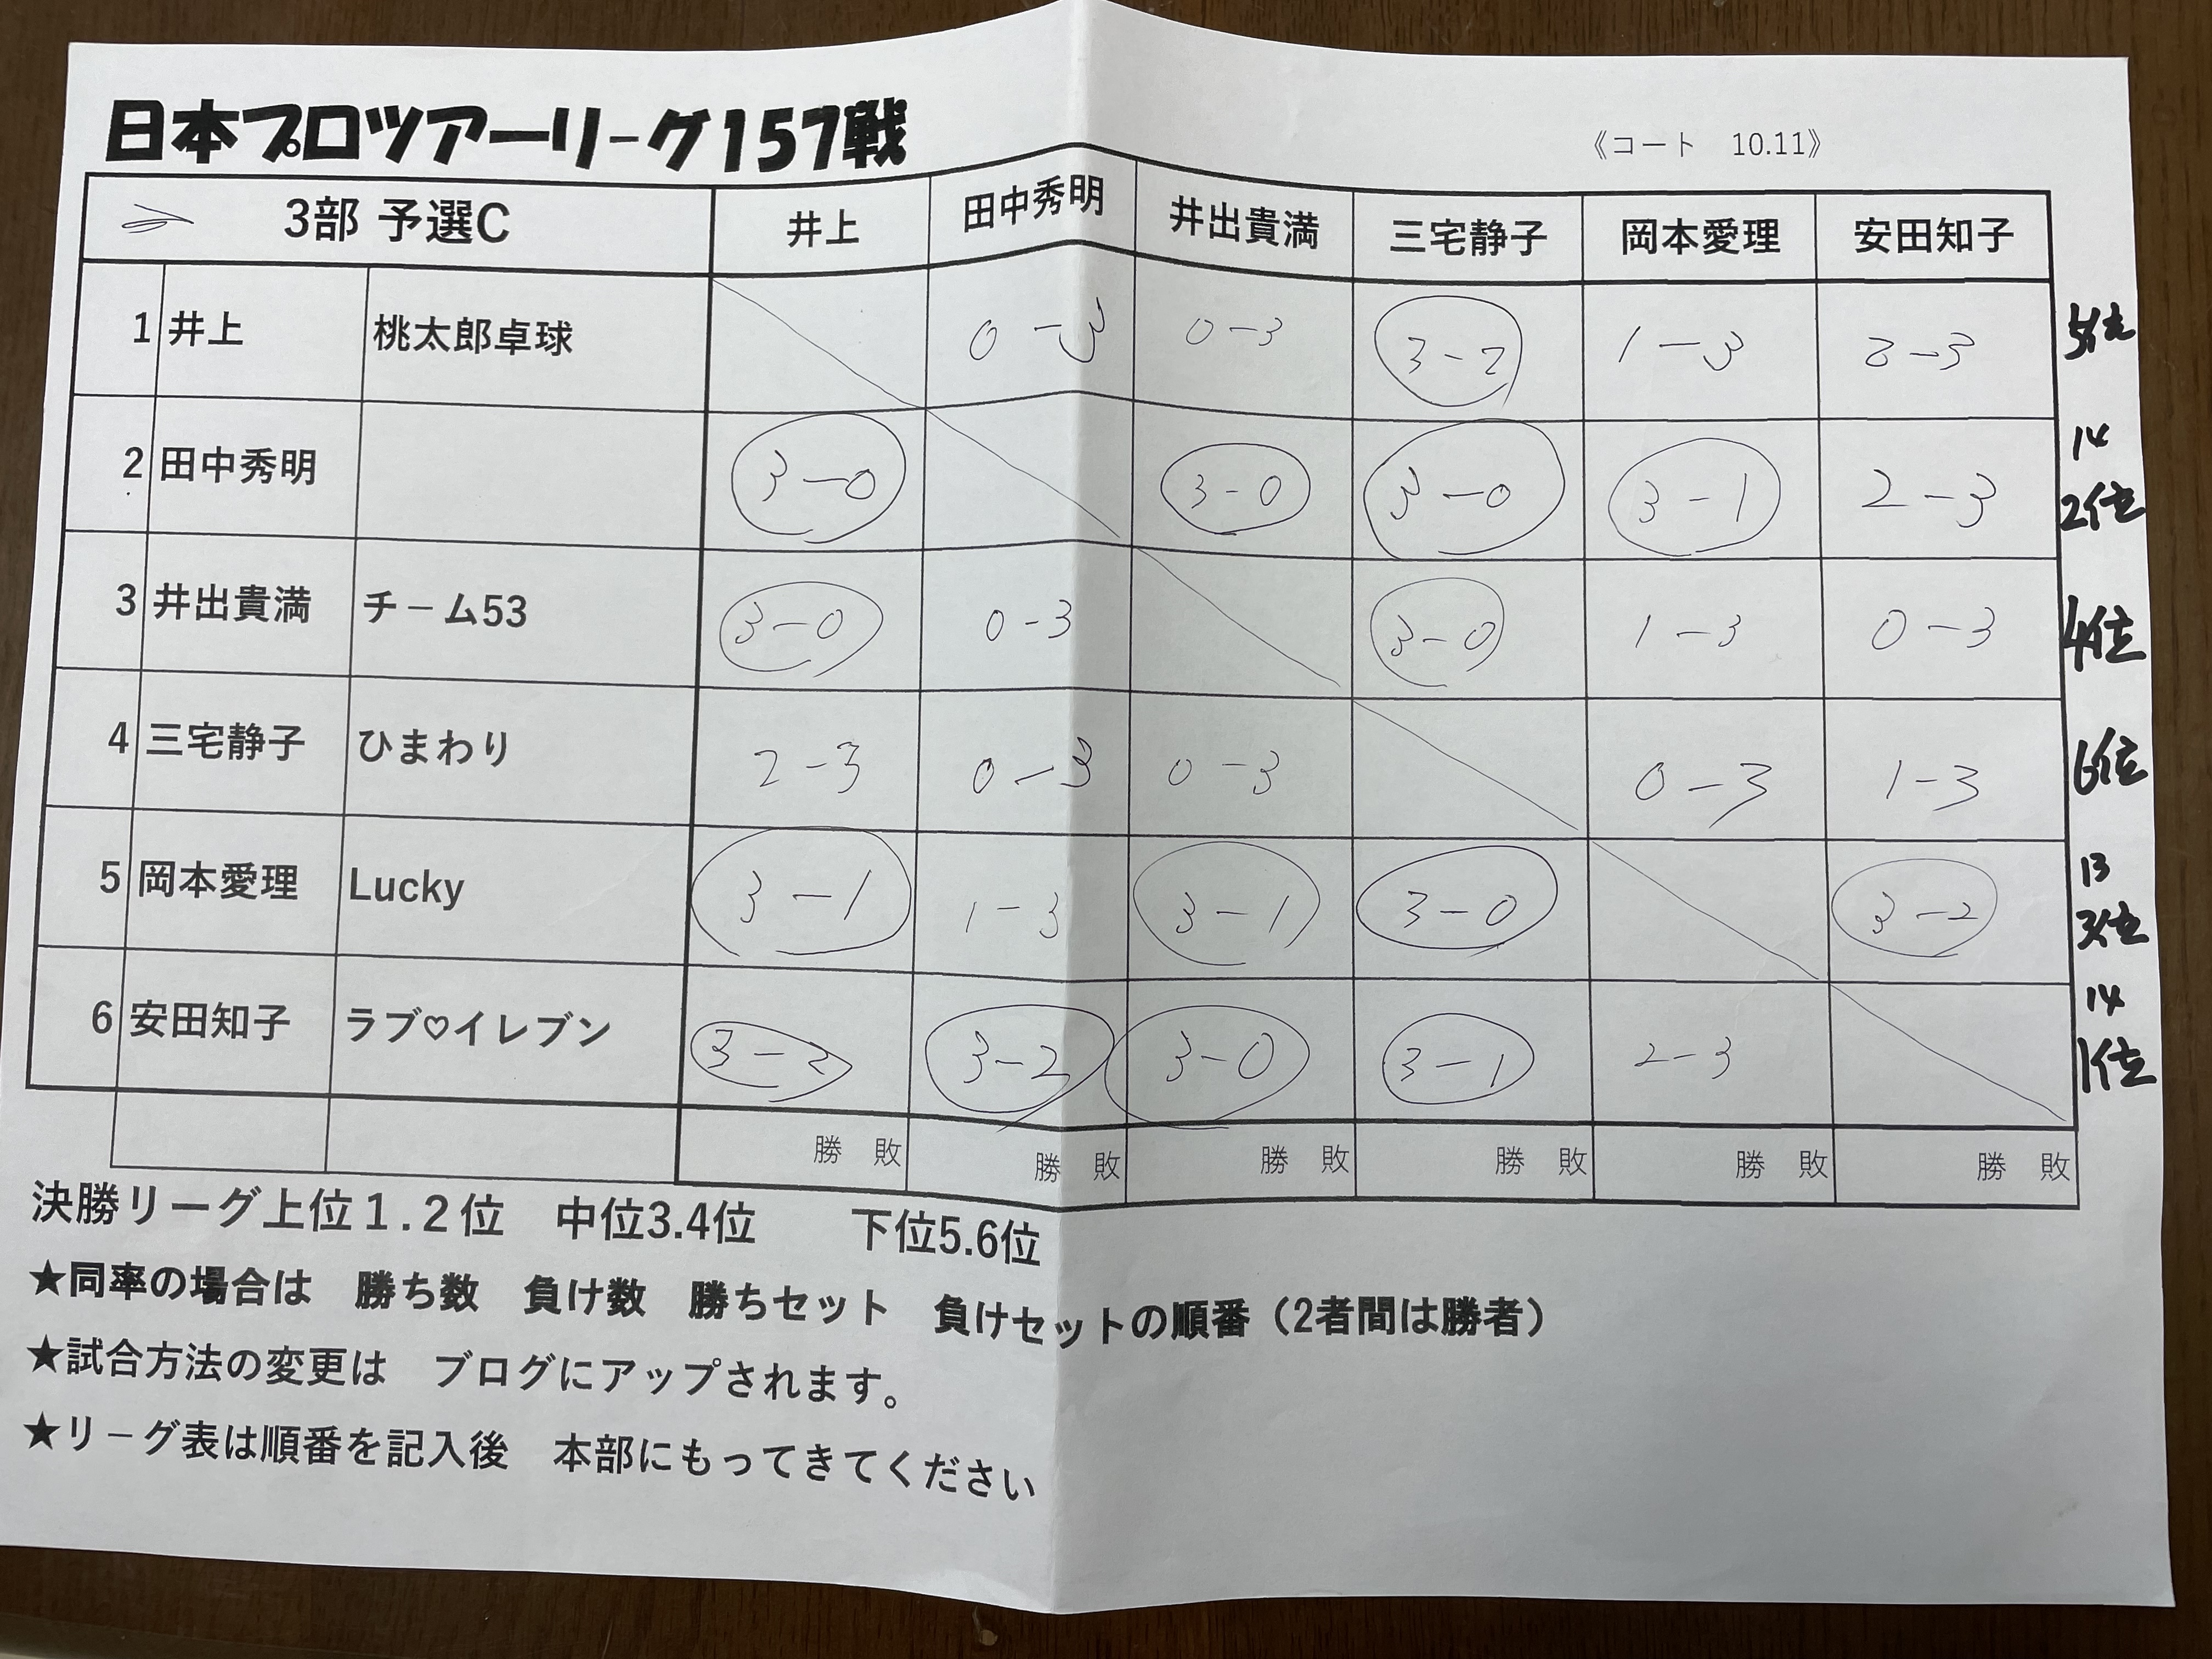 日本プロツアーリ−グ157戦
《コート　10.11》
3部 予選C 井上 田中秀明 井出貴満 三宅静子 岡本愛理 安田知子
1 井上 桃太郎卓球 0-3 0-3 3-2 1-3 2-3 5位
2 田中秀明 3-0 3-0 3-0 3-1 2-3 14 2位
3 井出貴満 チーム53 3-0 0-3 3-0 1-3 0-3 4位
4 三宅静子 ひまわり 2-3 0-3 0-3 0-3 1-3 6位
5 岡本愛理 Lucky 3-1 1-3 3-1 3-0 3-2 13 3位
6 安田知子 ラブ♡イレブン 3-2 3-2 3-0 3-1 2-3 14 1位
勝　敗 勝　敗 勝　敗 勝　敗 勝　敗 勝　敗
決勝リーグ上位１.２位　中位3.4位　　下位5.6位
★同率の場合は　勝ち数　負け数　勝ちセット　負けセットの順番（2者間は勝者）
★試合方法の変更は　ブログにアップされます。
★リ−グ表は順番を記入後　本部にもってきてください